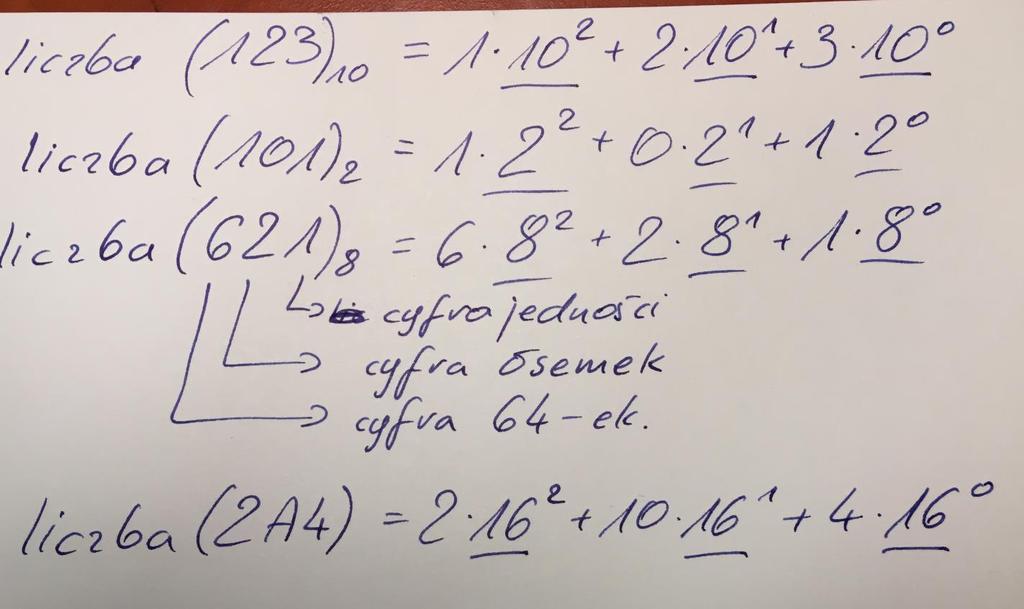 liczba (123)₁₀ = 1·10² + 2·10¹ + 3·10⁰
liczba (101)₂ = 1·2² + 0·2¹ + 1·2⁰
liczba (621)₈ = 6·8² + 2·8¹ + 1·8⁰
cyfra jedności
cyfra ósemek
cyfra 64-ek.
liczba (2A4) = 2·16² + 10·16¹ + 4·16⁰